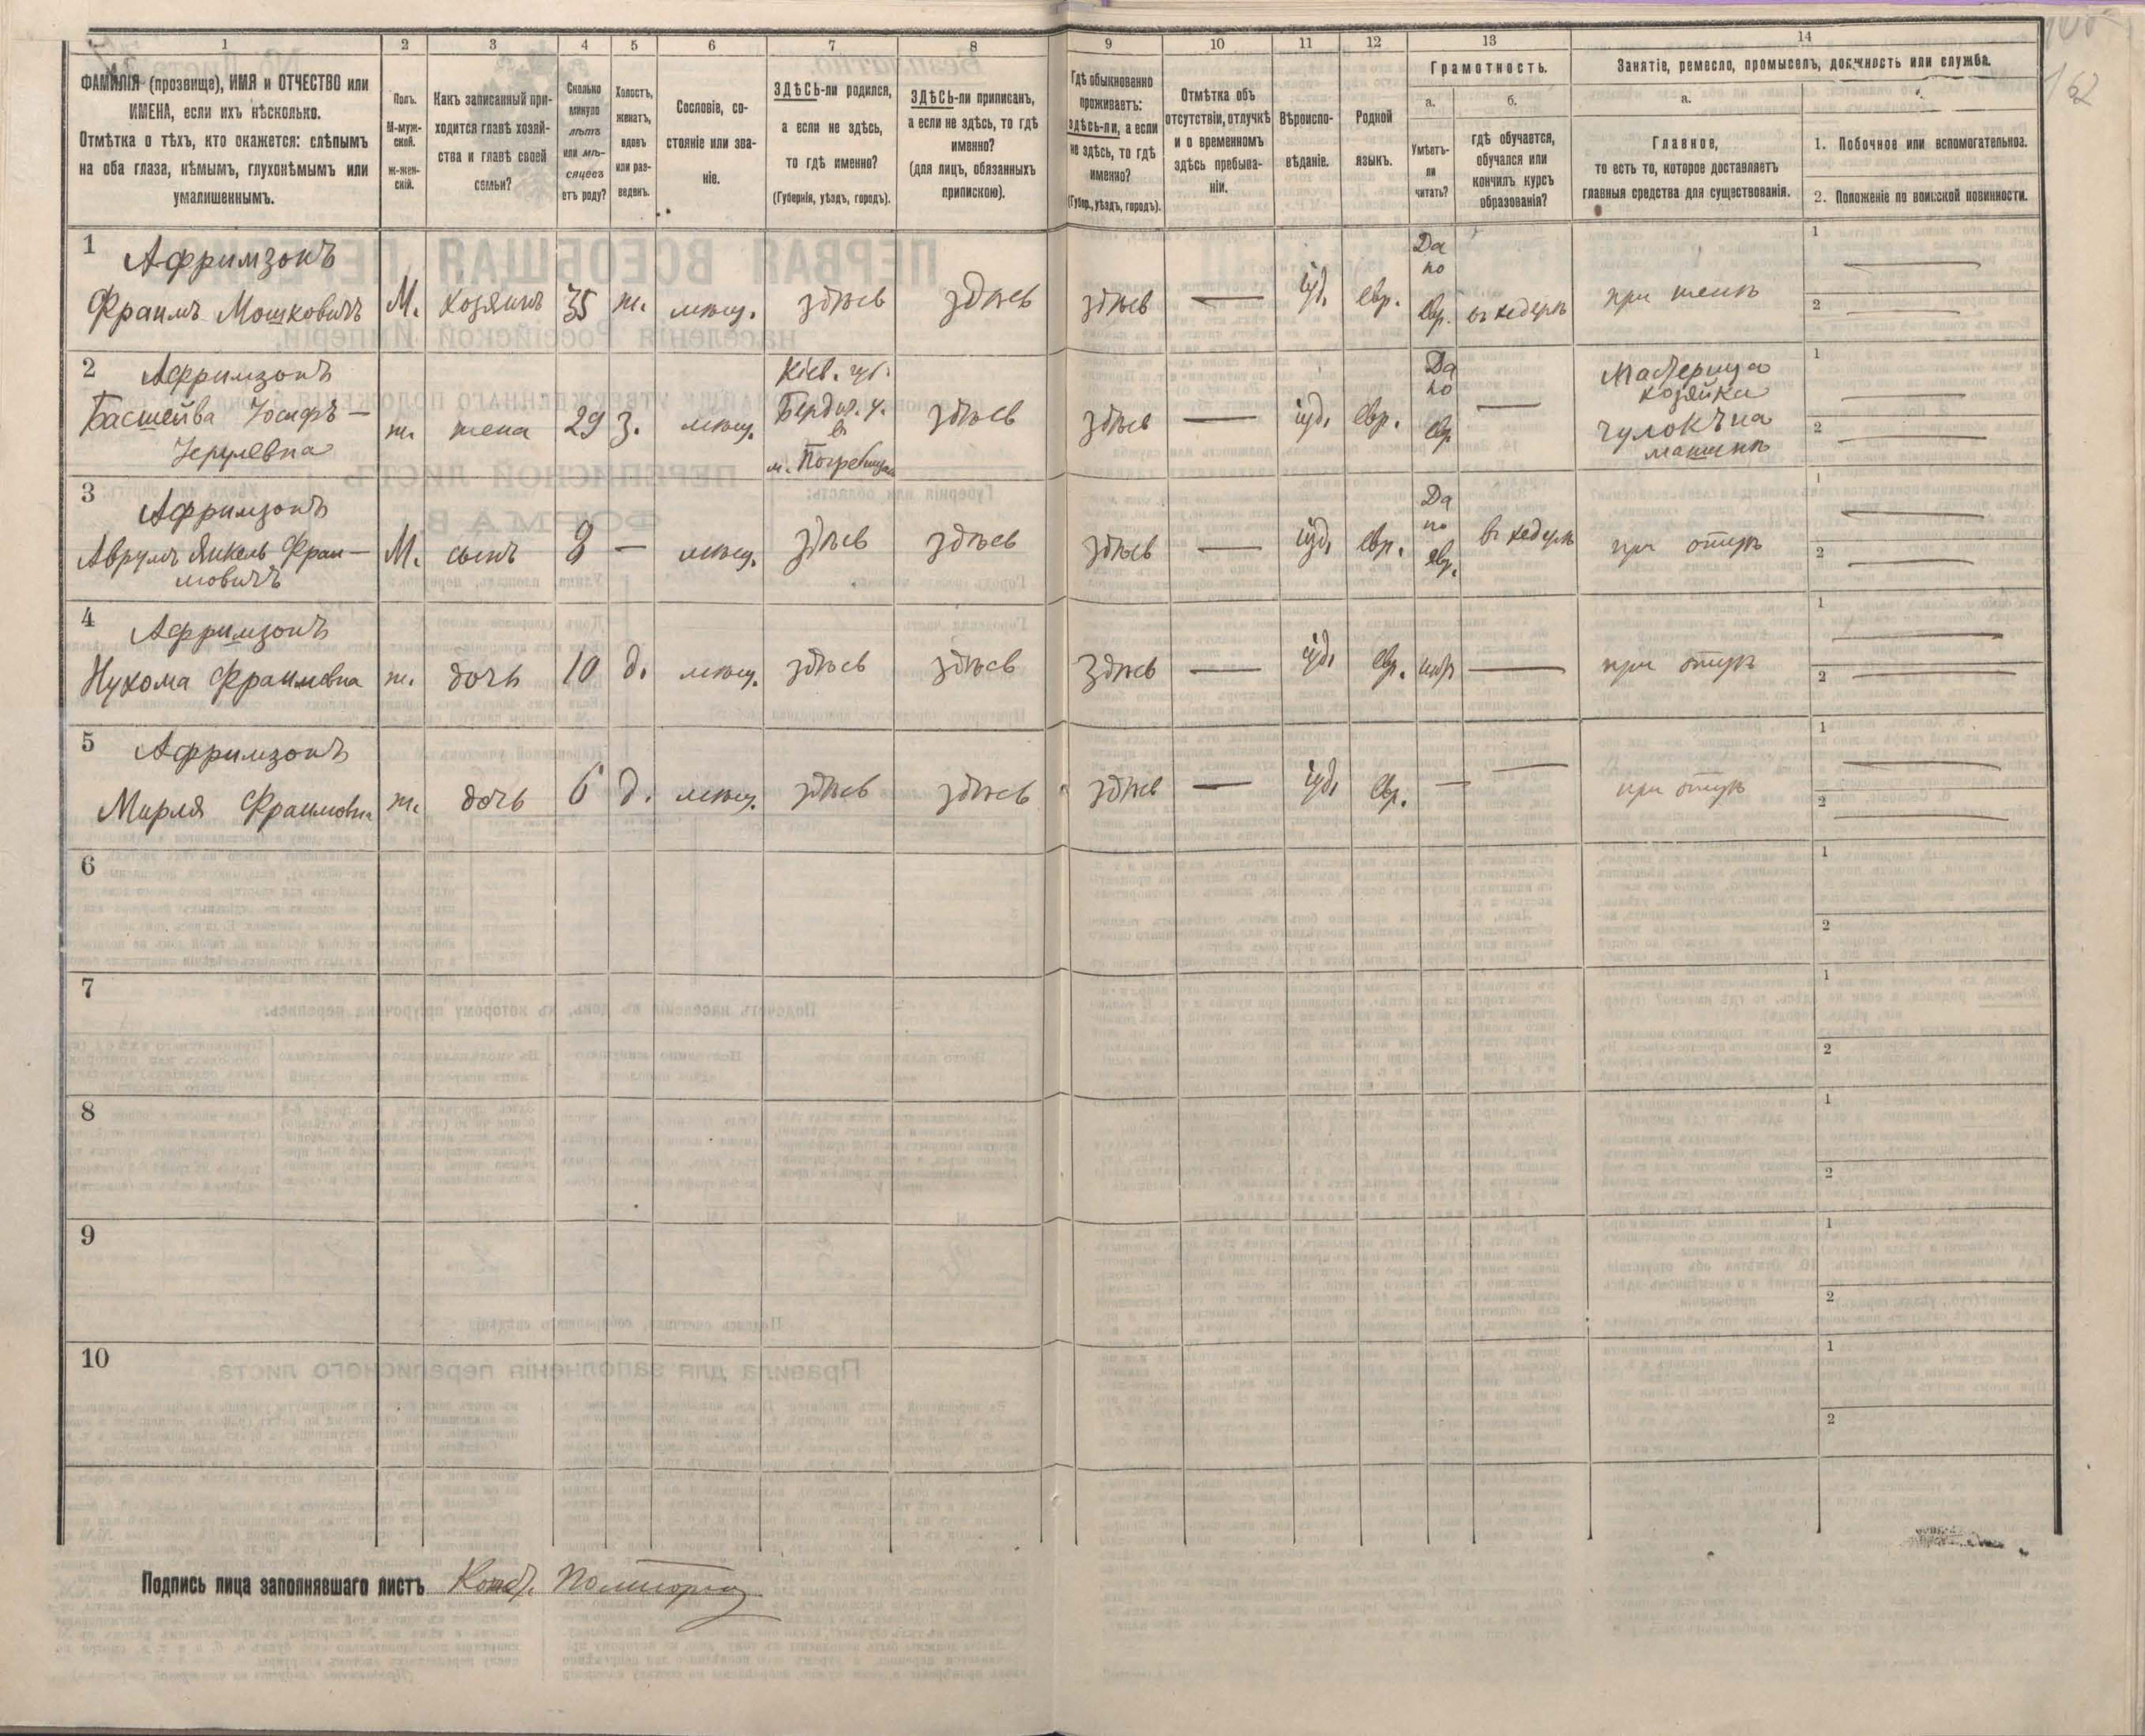 1 2 3 4 5 6 7 8 9 10 11 12 13 14
ФАМИЛІЯ (прозвище), ИМЯ и ОТЧЕСТВО или
ИМЕНА, если ихъ нѣсколько.
Отмѣтка о тѣхъ, кто окажется: слѣпымъ
на оба глаза, нѣмымъ, глухонѣмымъ или
умалишеннымъ.
Полъ.
М-муж-
ской.
ж-жен-
скій.
Какъ записанный при-
ходится главѣ хозяй-
ства и главѣ своей
семьи?
Сколько
минуло
лѣтъ
или мѣ-
сяцевъ
отъ роду?
Холостъ,
женатъ,
вдовъ
или раз-
веденъ.
Сословіе, со-
стояніе или зва-
ніе.
ЗДѢСЬ-ли родился,
а если не здѣсь,
то гдѣ именно?
(Губернія, уѣздъ, городъ).
ЗДѢСЬ-ли приписанъ,
а если не здѣсь, то гдѣ
именно?
(для лицъ, обязанныхъ
припискою).
Гдѣ обыкновенно
проживаетъ:
здѣсь-ли, а если
не здѣсь, то гдѣ
именно?
(Губер., уѣздъ, городъ).
Отмѣтка объ
отсутствіи, отлучкѣ
и о временномъ
здѣсь пребыва-
ніи.
Вѣроиспо-
вѣданіе.
Родной
языкъ.
Грамотность.
а.
Умѣетъ-
ли
читать?
б.
гдѣ обучается,
обучался или
кончилъ курсъ
образованія?
Занятіе, ремесло, промыселъ, должность или служба.
а.
Главное,
то есть то, которое доставляетъ
главныя средства для существованія.
1. Побочное или вспомогательное.
2. Положеніе по воинской повинности.
1 Афримзонъ
Фраимъ Мошковичъ М. хозяинъ 35 ж. мѣщ. здѣсь здѣсь здѣсь — іуд. евр. Да по евр. въ хедерѣ 1 — 2 —
2 Афримзонъ
Басшейва Іосифъ-
ж. жена 29 з. мѣщ. Кіев. губ. Бердич. у. в м. Погребищахъ здѣсь здѣсь — іуд. евр. Да по евр. — Мастерица
хозяйка
чулокъ на
машинѣ 1 — 2 —
3 Афримзонъ
Аврумъ Янкель Фраи-
мовичъ М. сынъ 8 — мѣщ. здѣсь здѣсь здѣсь — іуд. евр. Да по евр. въ хедерѣ при отцѣ 1 — 2 —
4 Афримзонъ
Нухома Фраимовна ж. дочь 10 д. мѣщ. здѣсь здѣсь здѣсь — іуд. евр. нѣтъ — при отцѣ 1 — 2 —
5 Афримзонъ
Мирля Фраимовна ж. дочь 6 д. мѣщ. здѣсь здѣсь здѣсь — іуд. евр. — — при отцѣ 1 — 2 —
6 1 2
7 1 2
8 1 2
9 1 2
10 1 2
Подпись лица заполнявшаго листъ